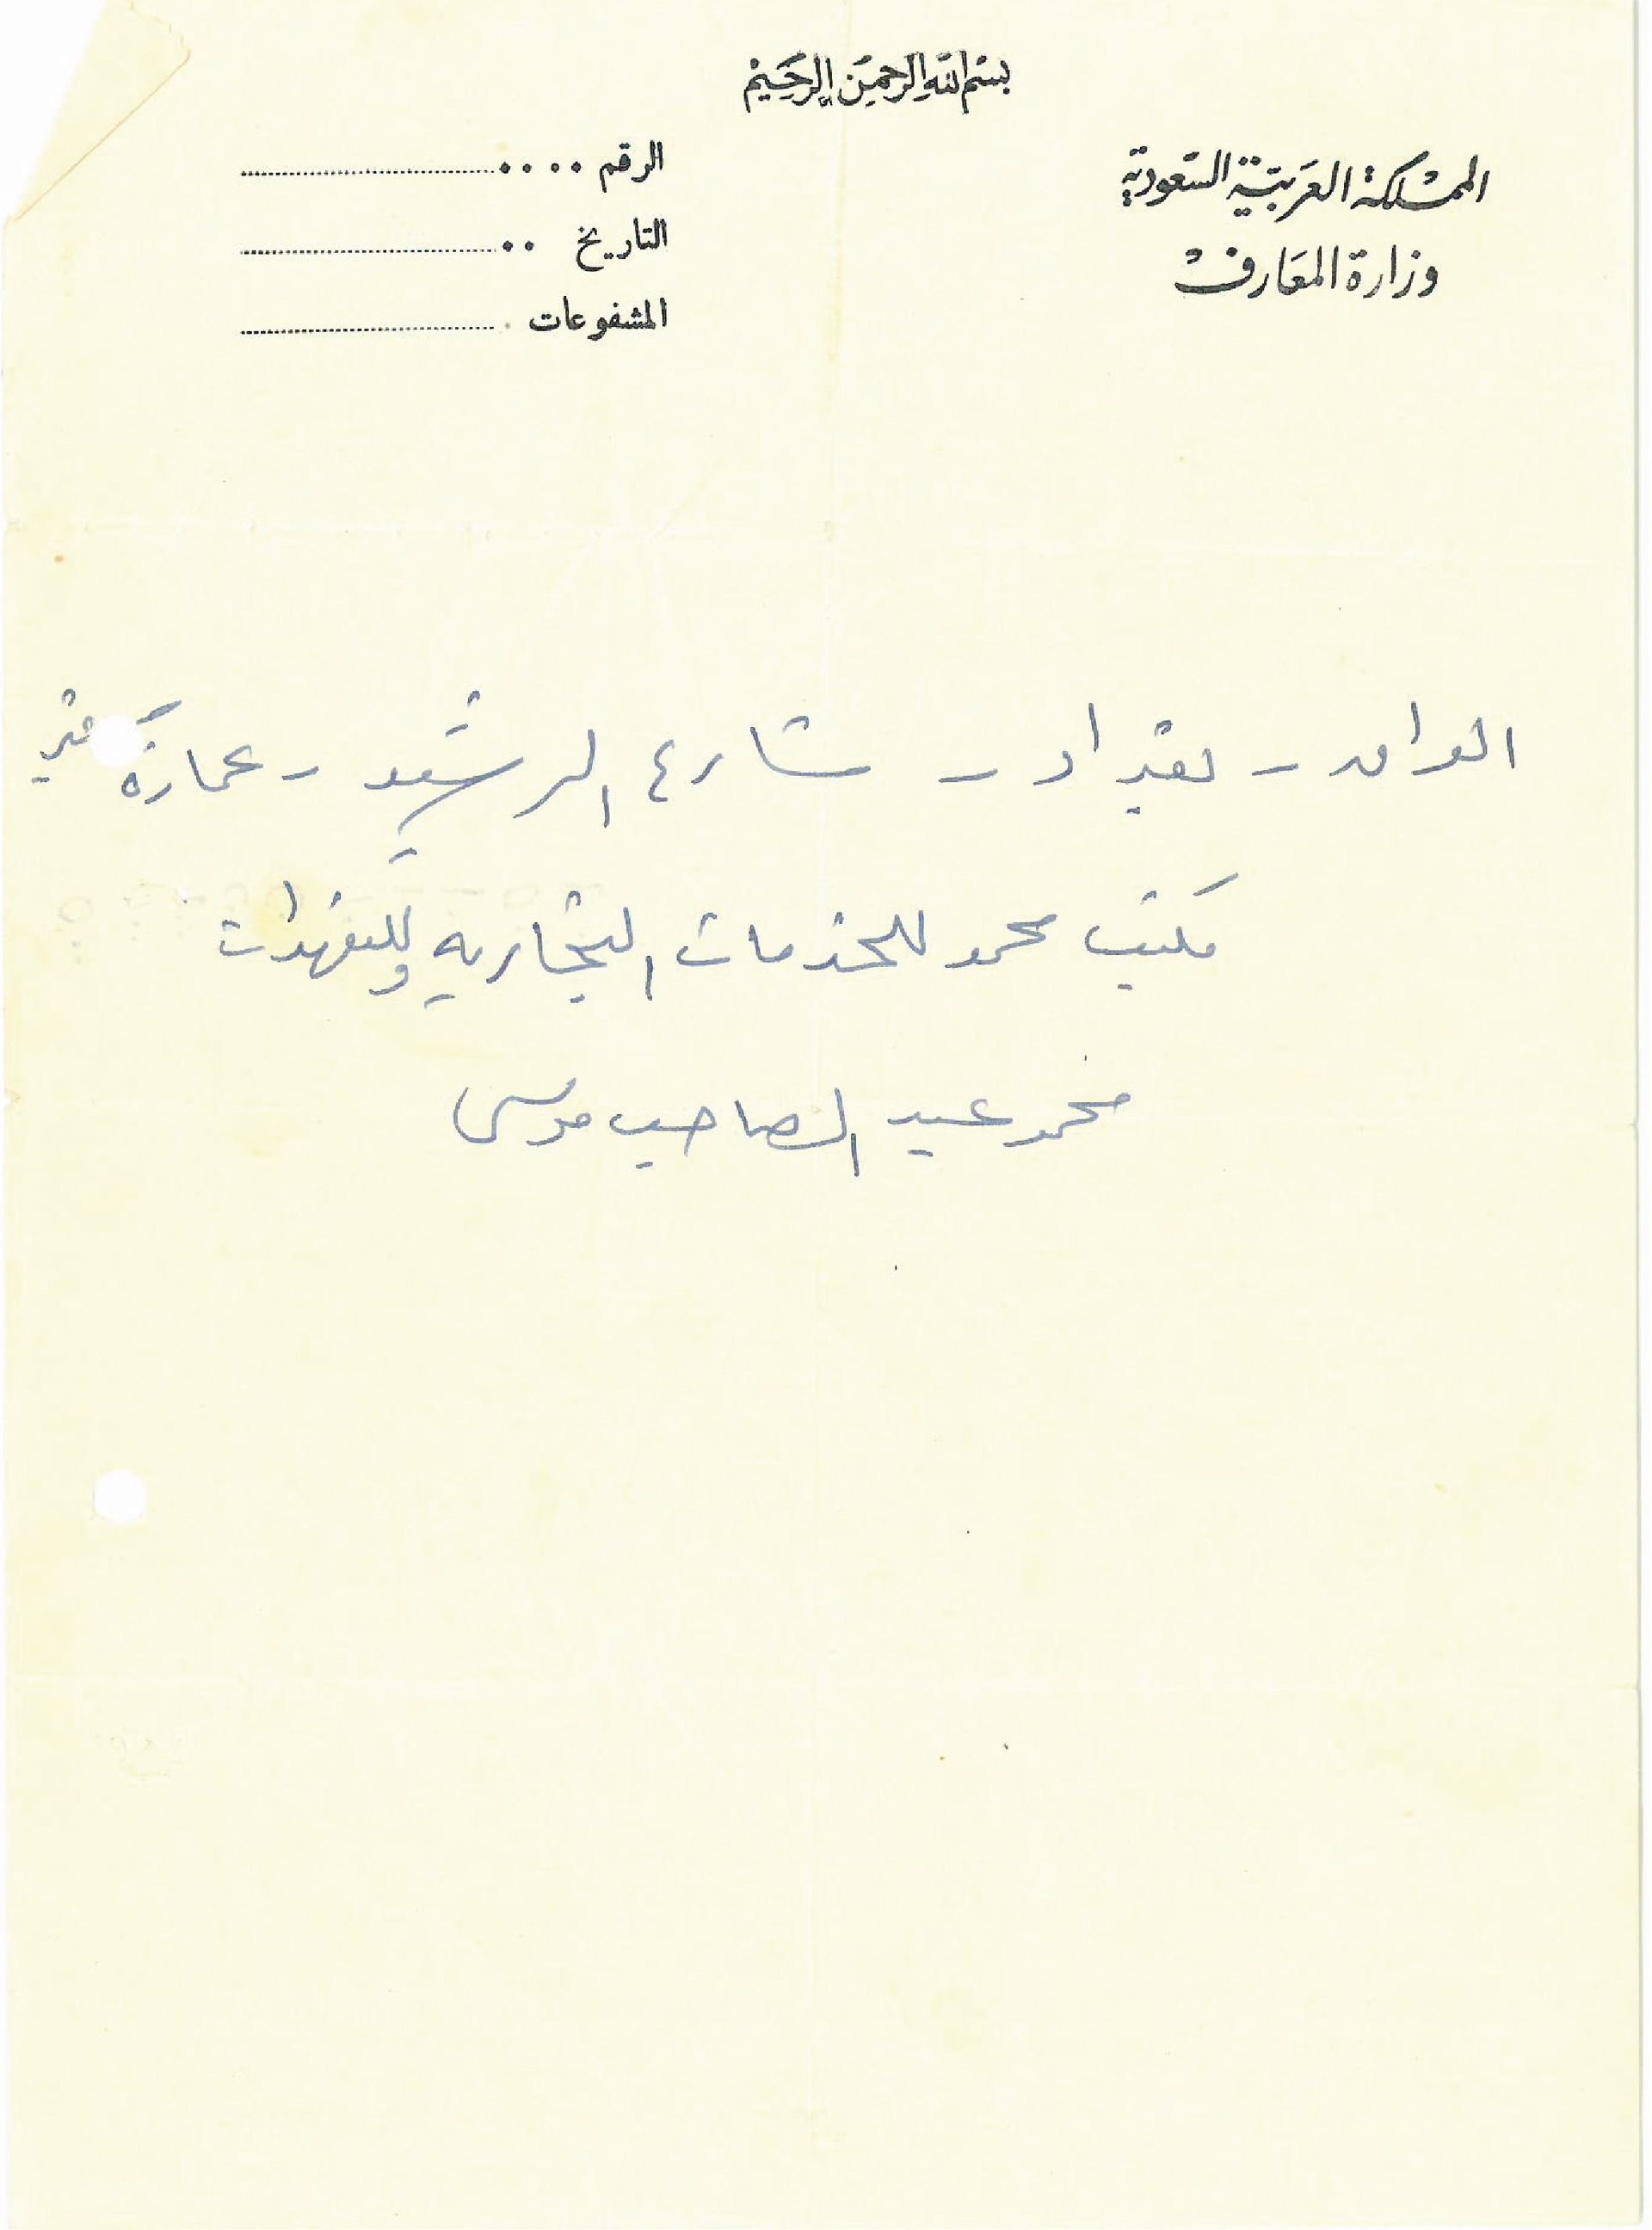 بسم الله الرحمن الرحيم
المملكة العربية السعودية
وزارة المعارف
الرقم ....
التاريخ ..
المشفوعات .
العراق - بغداد - شارع الرشيد - عمارة
مكتب محمد للخدمات التجارية والتعهدات
محمد عبد الصاحب موسى